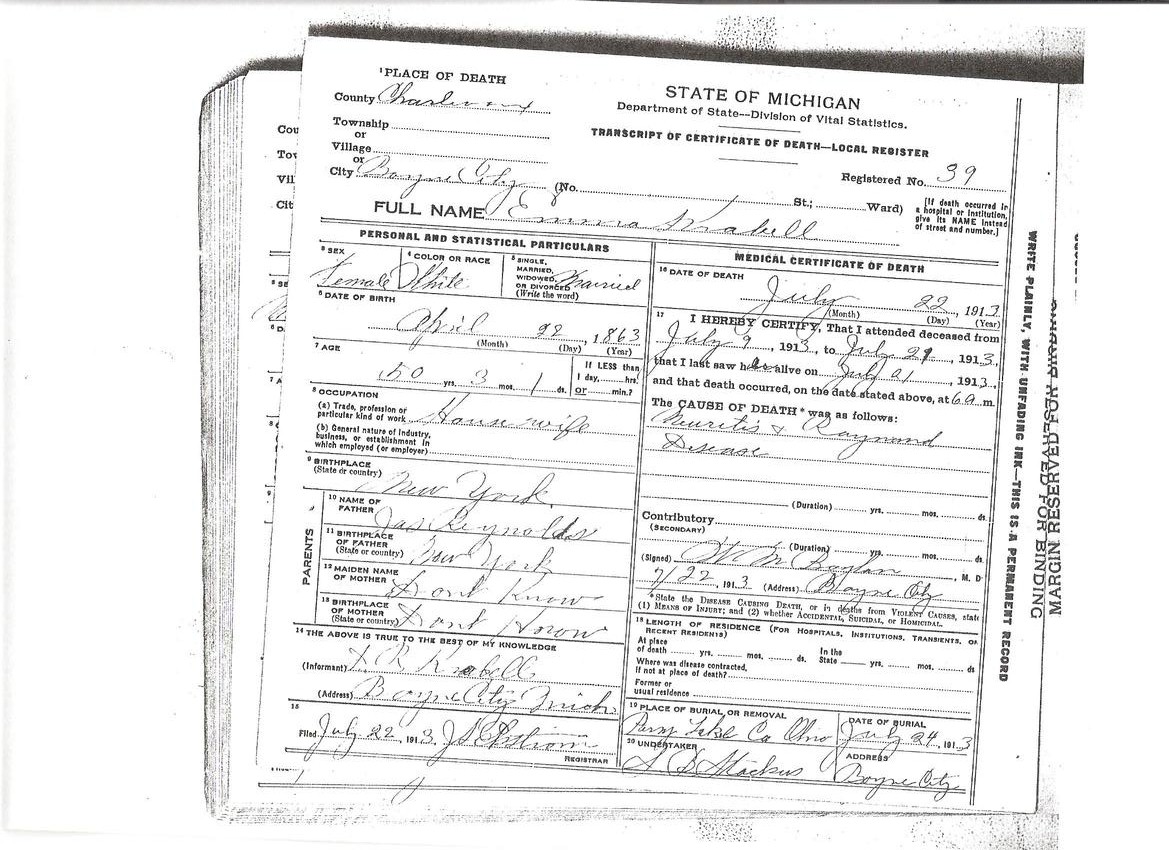 ¹PLACE OF DEATH
County Charlevoix
Township
or
Village
or
City Boyne City (No. St.; Ward)
STATE OF MICHIGAN
Department of State---Division of Vital Statistics.
TRANSCRIPT OF CERTIFICATE OF DEATH—LOCAL REGISTER
Registered No. 39
[If death occurred in
a hospital or institution,
give its NAME instead
of street and number.]
FULL NAME Emma Krabell
PERSONAL AND STATISTICAL PARTICULARS
³ SEX Female
⁴ COLOR OR RACE White
⁵ SINGLE,
MARRIED,
WIDOWED,
OR DIVORCED Married
(Write the word)
⁶ DATE OF BIRTH
April 22, 1863
(Month) (Day) (Year)
⁷ AGE
50 yrs. 3 mos. 1 ds.
If LESS than
1 day, hrs.
or min.?
⁸ OCCUPATION
(a) Trade, profession or
particular kind of work House wife
(b) General nature of industry,
business, or establishment in
which employed (or employer)
⁹ BIRTHPLACE
(State or country) New York
PARENTS
¹⁰ NAME OF
FATHER Jas Reynolds
¹¹ BIRTHPLACE
OF FATHER
(State or country) New York
¹² MAIDEN NAME
OF MOTHER Dont Know
¹³ BIRTHPLACE
OF MOTHER
(State or country) Dont Know
¹⁴ THE ABOVE IS TRUE TO THE BEST OF MY KNOWLEDGE
(Informant) Krabell
(Address) Boyne City Mich
¹⁵
Filed July 22 1913,
REGISTRAR
MEDICAL CERTIFICATE OF DEATH
¹⁶ DATE OF DEATH
July 22, 1913
(Month) (Day) (Year)
¹⁷ I HEREBY CERTIFY, That I attended deceased from
July 9, 1913, to July 21, 1913,
that I last saw her alive on July 21, 1913,
and that death occurred, on the date stated above, at 6 a m.
The CAUSE OF DEATH* was as follows:
Neuritis & Raynaud
Disease
(Duration) yrs. mos. ds.
Contributory
(SECONDARY)
(Duration) yrs. mos. ds
(Signed) M. D
7/22, 1913 (Address) Boyne City
*State the DISEASE CAUSING DEATH, or in deaths from VIOLENT CAUSES, state
(1) MEANS OF INJURY; and (2) whether ACCIDENTAL, SUICIDAL, OR HOMICIDAL.
¹⁸ LENGTH OF RESIDENCE (FOR HOSPITALS, INSTITUTIONS, TRANSIENTS, OR
RECENT RESIDENTS)
At place
of death yrs. mos. ds.
In the
State yrs. mos. ds
Where was disease contracted,
if not at place of death?
Former or
usual residence
¹⁹ PLACE OF BURIAL OR REMOVAL
Perry Lake Co Ohio
DATE OF BURIAL
July 24, 1913
²⁰ UNDERTAKER
Stackus
ADDRESS
Boyne City
WRITE PLAINLY, WITH UNFADING INK—THIS IS A PERMANENT RECORD
MARGIN RESERVED FOR BINDING